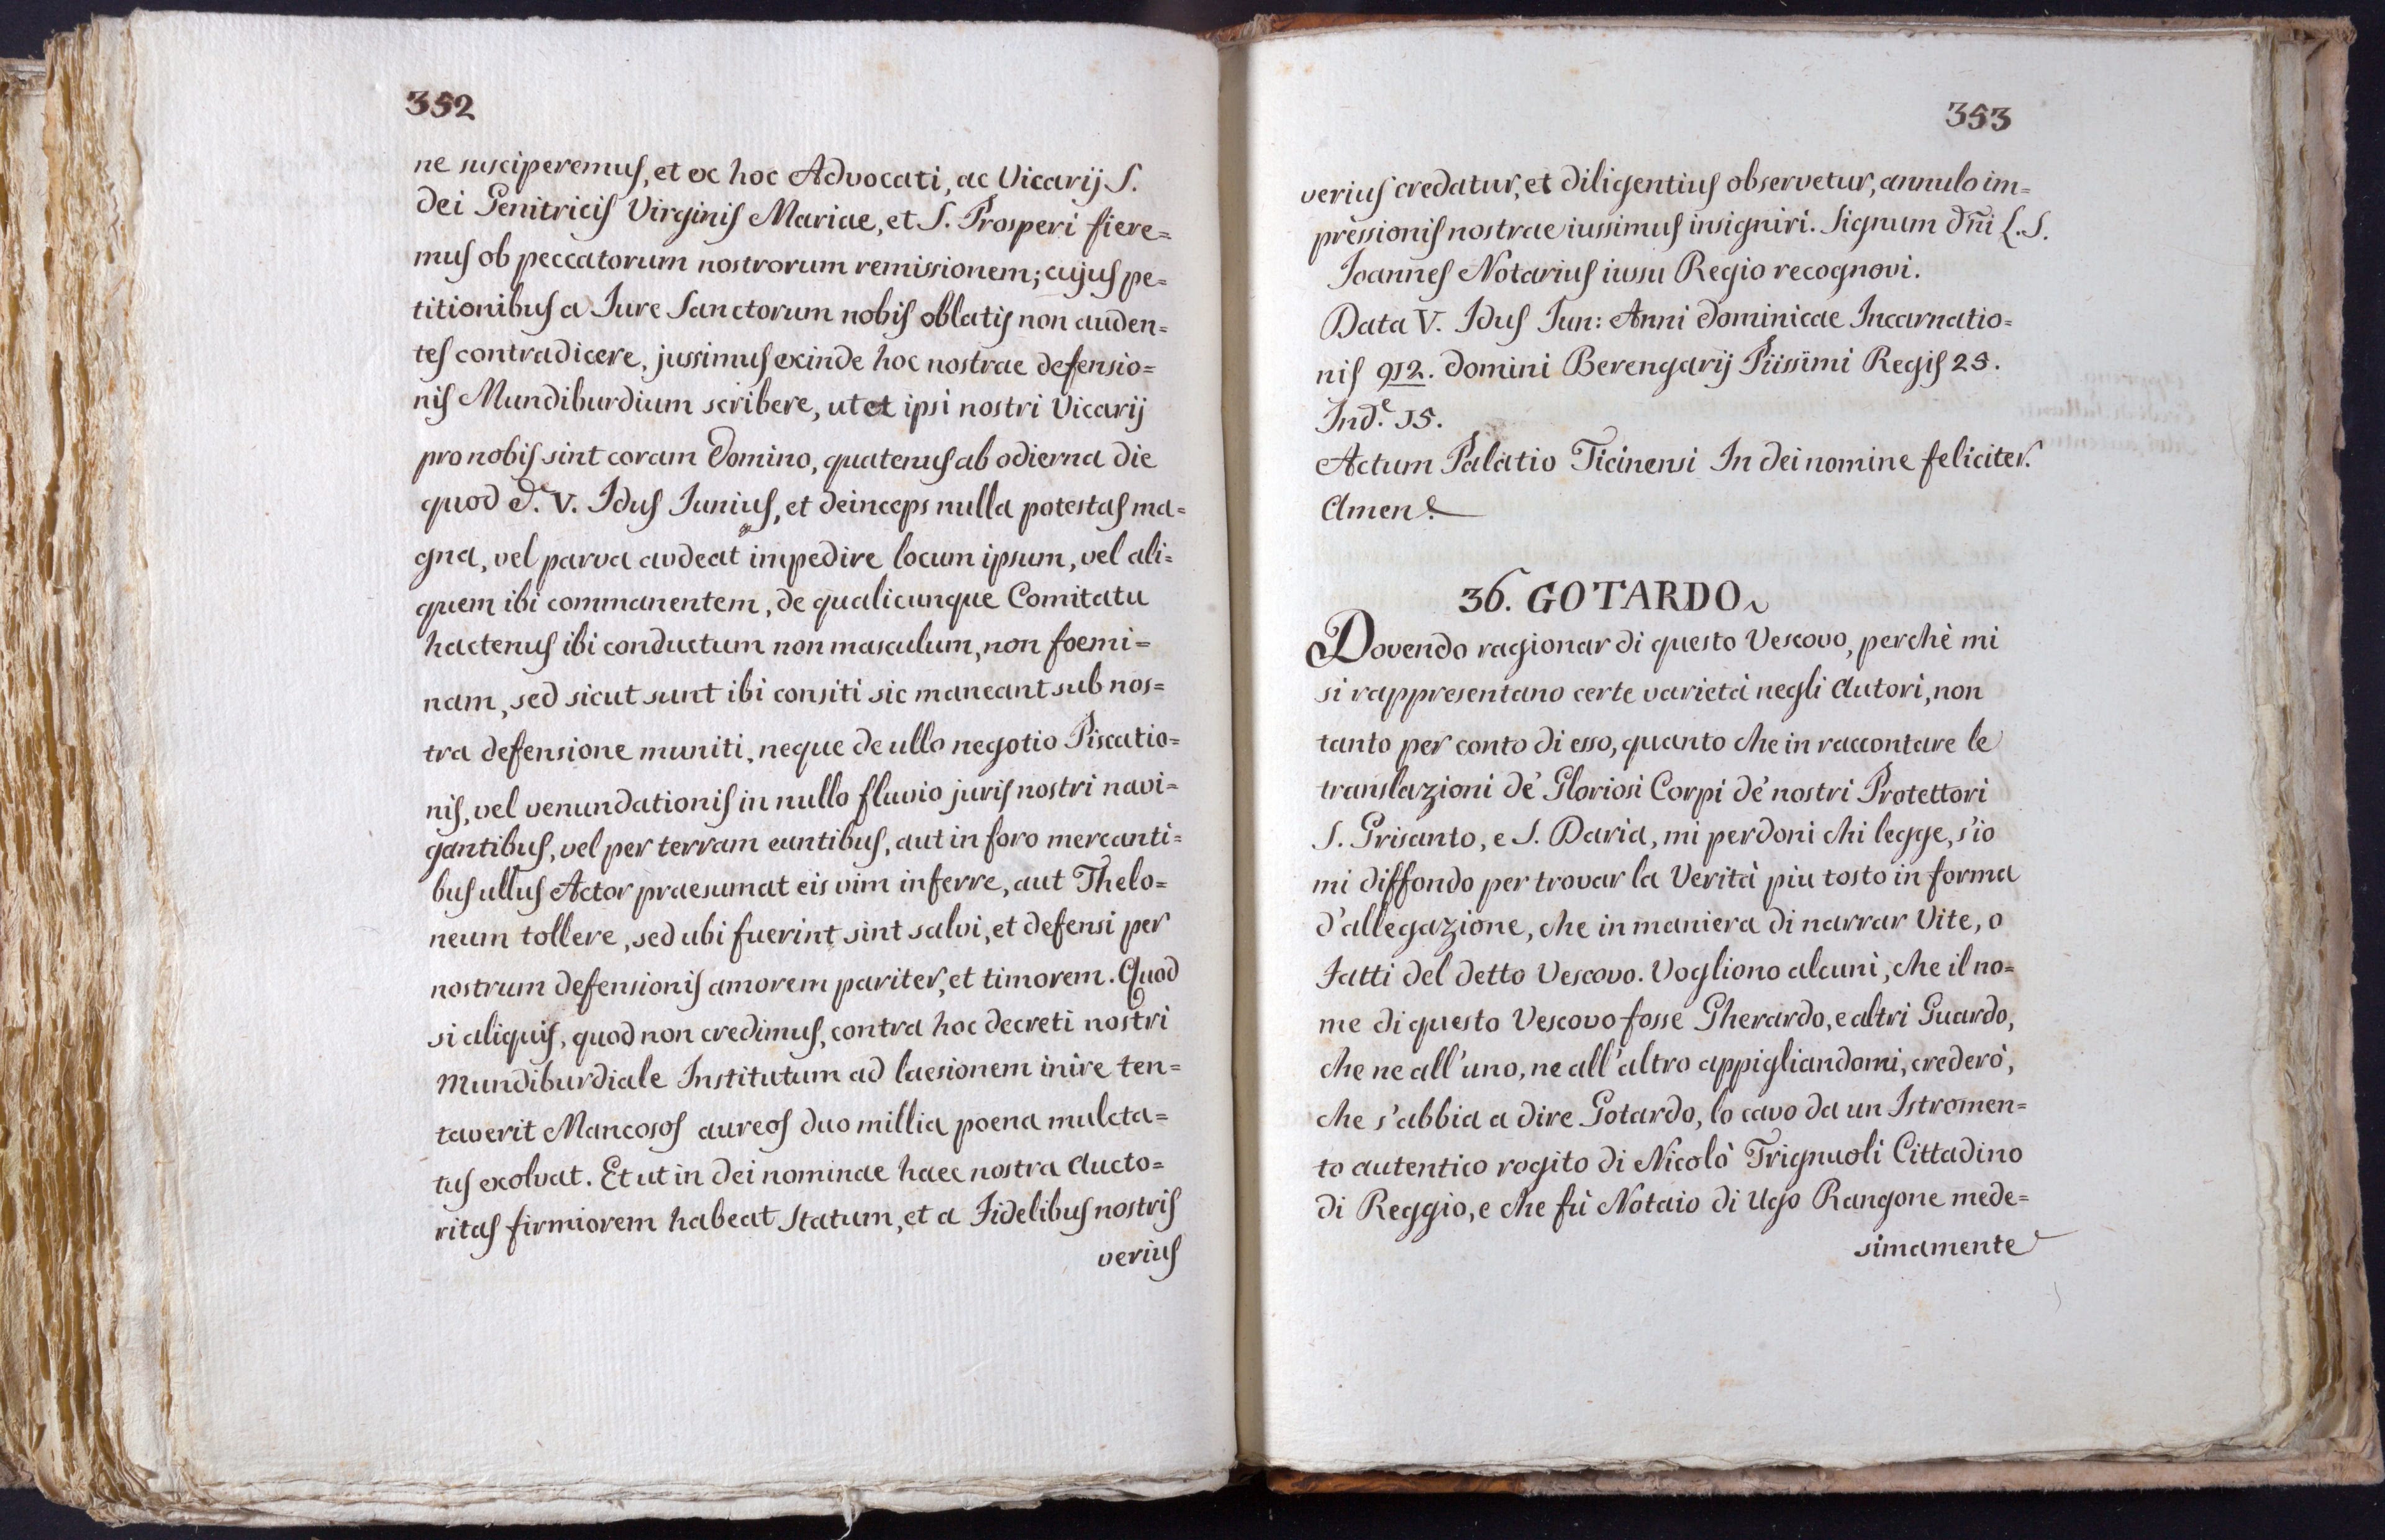 352
ne susciperemus, et ex hoc Advocati, ac Vicarij S.
Dei Genitricis Virginis Mariae, et S. Prosperi fiere=
mus ob peccatorum nostrorum remissionem; cujus pe=
titionibus a Iure Sanctorum nobis oblatis non auden=
tes contradicere, jussimus exinde hoc nostrae defensio=
nis Mundiburdium scribere, ut et ipsi nostri Vicarij
pro nobis sint coram Domino, quatenus ab odierna die
quod d.e V. Idus Iunius, et deinceps nulla potestas ma=
gna, vel parva audeat impedire locum ipsum, vel ali=
quem ibi commanentem, de qualicunque Comitatu
hactenus ibi conductum non masculum, non foemi=
nam, sed sicut sunt ibi consiti sic maneant sub nos=
tra defensione muniti, neque de ullo negotio Piscatio=
nis, vel venundationis in nullo fluvio juris nostri navi=
gantibus, vel per terram euntibus, aut in foro mercanti=
bus ullus Actor praesumat eis vim inferre, aut Thelo=
neum tollere, sed ubi fuerint sint salvi, et defensi per
nostrum defensionis amorem pariter, et timorem. Quod
si aliquis, quod non credimus, contra hoc decreti nostri
Mundiburdiale Institutum ad laesionem inire ten=
taverit Mancosos aureos duo millia poena mulcta=
tus exolvat. Et ut in Dei nominae haec nostra Aucto=
ritas firmiorem habeat Statum, et a Fidelibus nostris
verius
353
verius credatur, et diligentius observetur, annulo im=
pressionis nostrae iussimus insigniri. Signum Dñi L.S.
Joannes Notarius iussu Regio recognovi.
Data V. Idus Iun: Anni Dominicae Incarnatio=
nis 912. Domini Berengarij Piissimi Regis 25.
Ind.e 15.
Actum Palatio Ticinensi In Dei nomine feliciter.
Amen.
36. GOTARDO
Dovendo ragionar di questo Vescovo, perchè mi
si rappresentano certe varietà negli Autori, non
tanto per conto di esso, quanto che in raccontare le
translazioni de' Gloriosi Corpi de' nostri Protettori
S. Grisanto, e S. Daria, mi perdoni chi legge, s'io
mi diffondo per trovar la Verità piu tosto in forma
d'allegazione, che in maniera di narrar Vite, o
Fatti del detto Vescovo. Vogliono alcuni, che il no=
me di questo Vescovo fosse Gherardo, e altri Guardo,
che ne all'uno, ne all'altro appigliandomi, crederò,
che s'abbia a dire Gotardo, lo cavo da un Istromen=
to autentico rogito di Nicolò Trignuoli Cittadino
di Reggio, e che fù Notaio di Ugo Rangone mede=
simamente